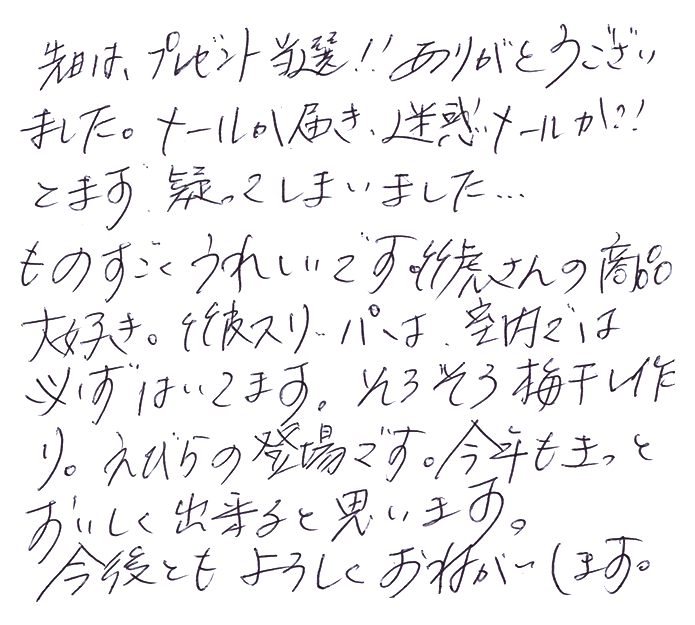 先日は、プレゼント当選!! ありがとうござい
ました。メールが届き、迷惑メールか?!
とまず 疑ってしまいました…
ものすごくうれしいです。竹虎さんの商品
大好き。竹皮スリッパは、室内では
必ずはいてます。そろそろ梅干し作
り。えびらの登場です。今年もきっと
おいしく出来ると思います。
今後とも よろしくおねがいします。